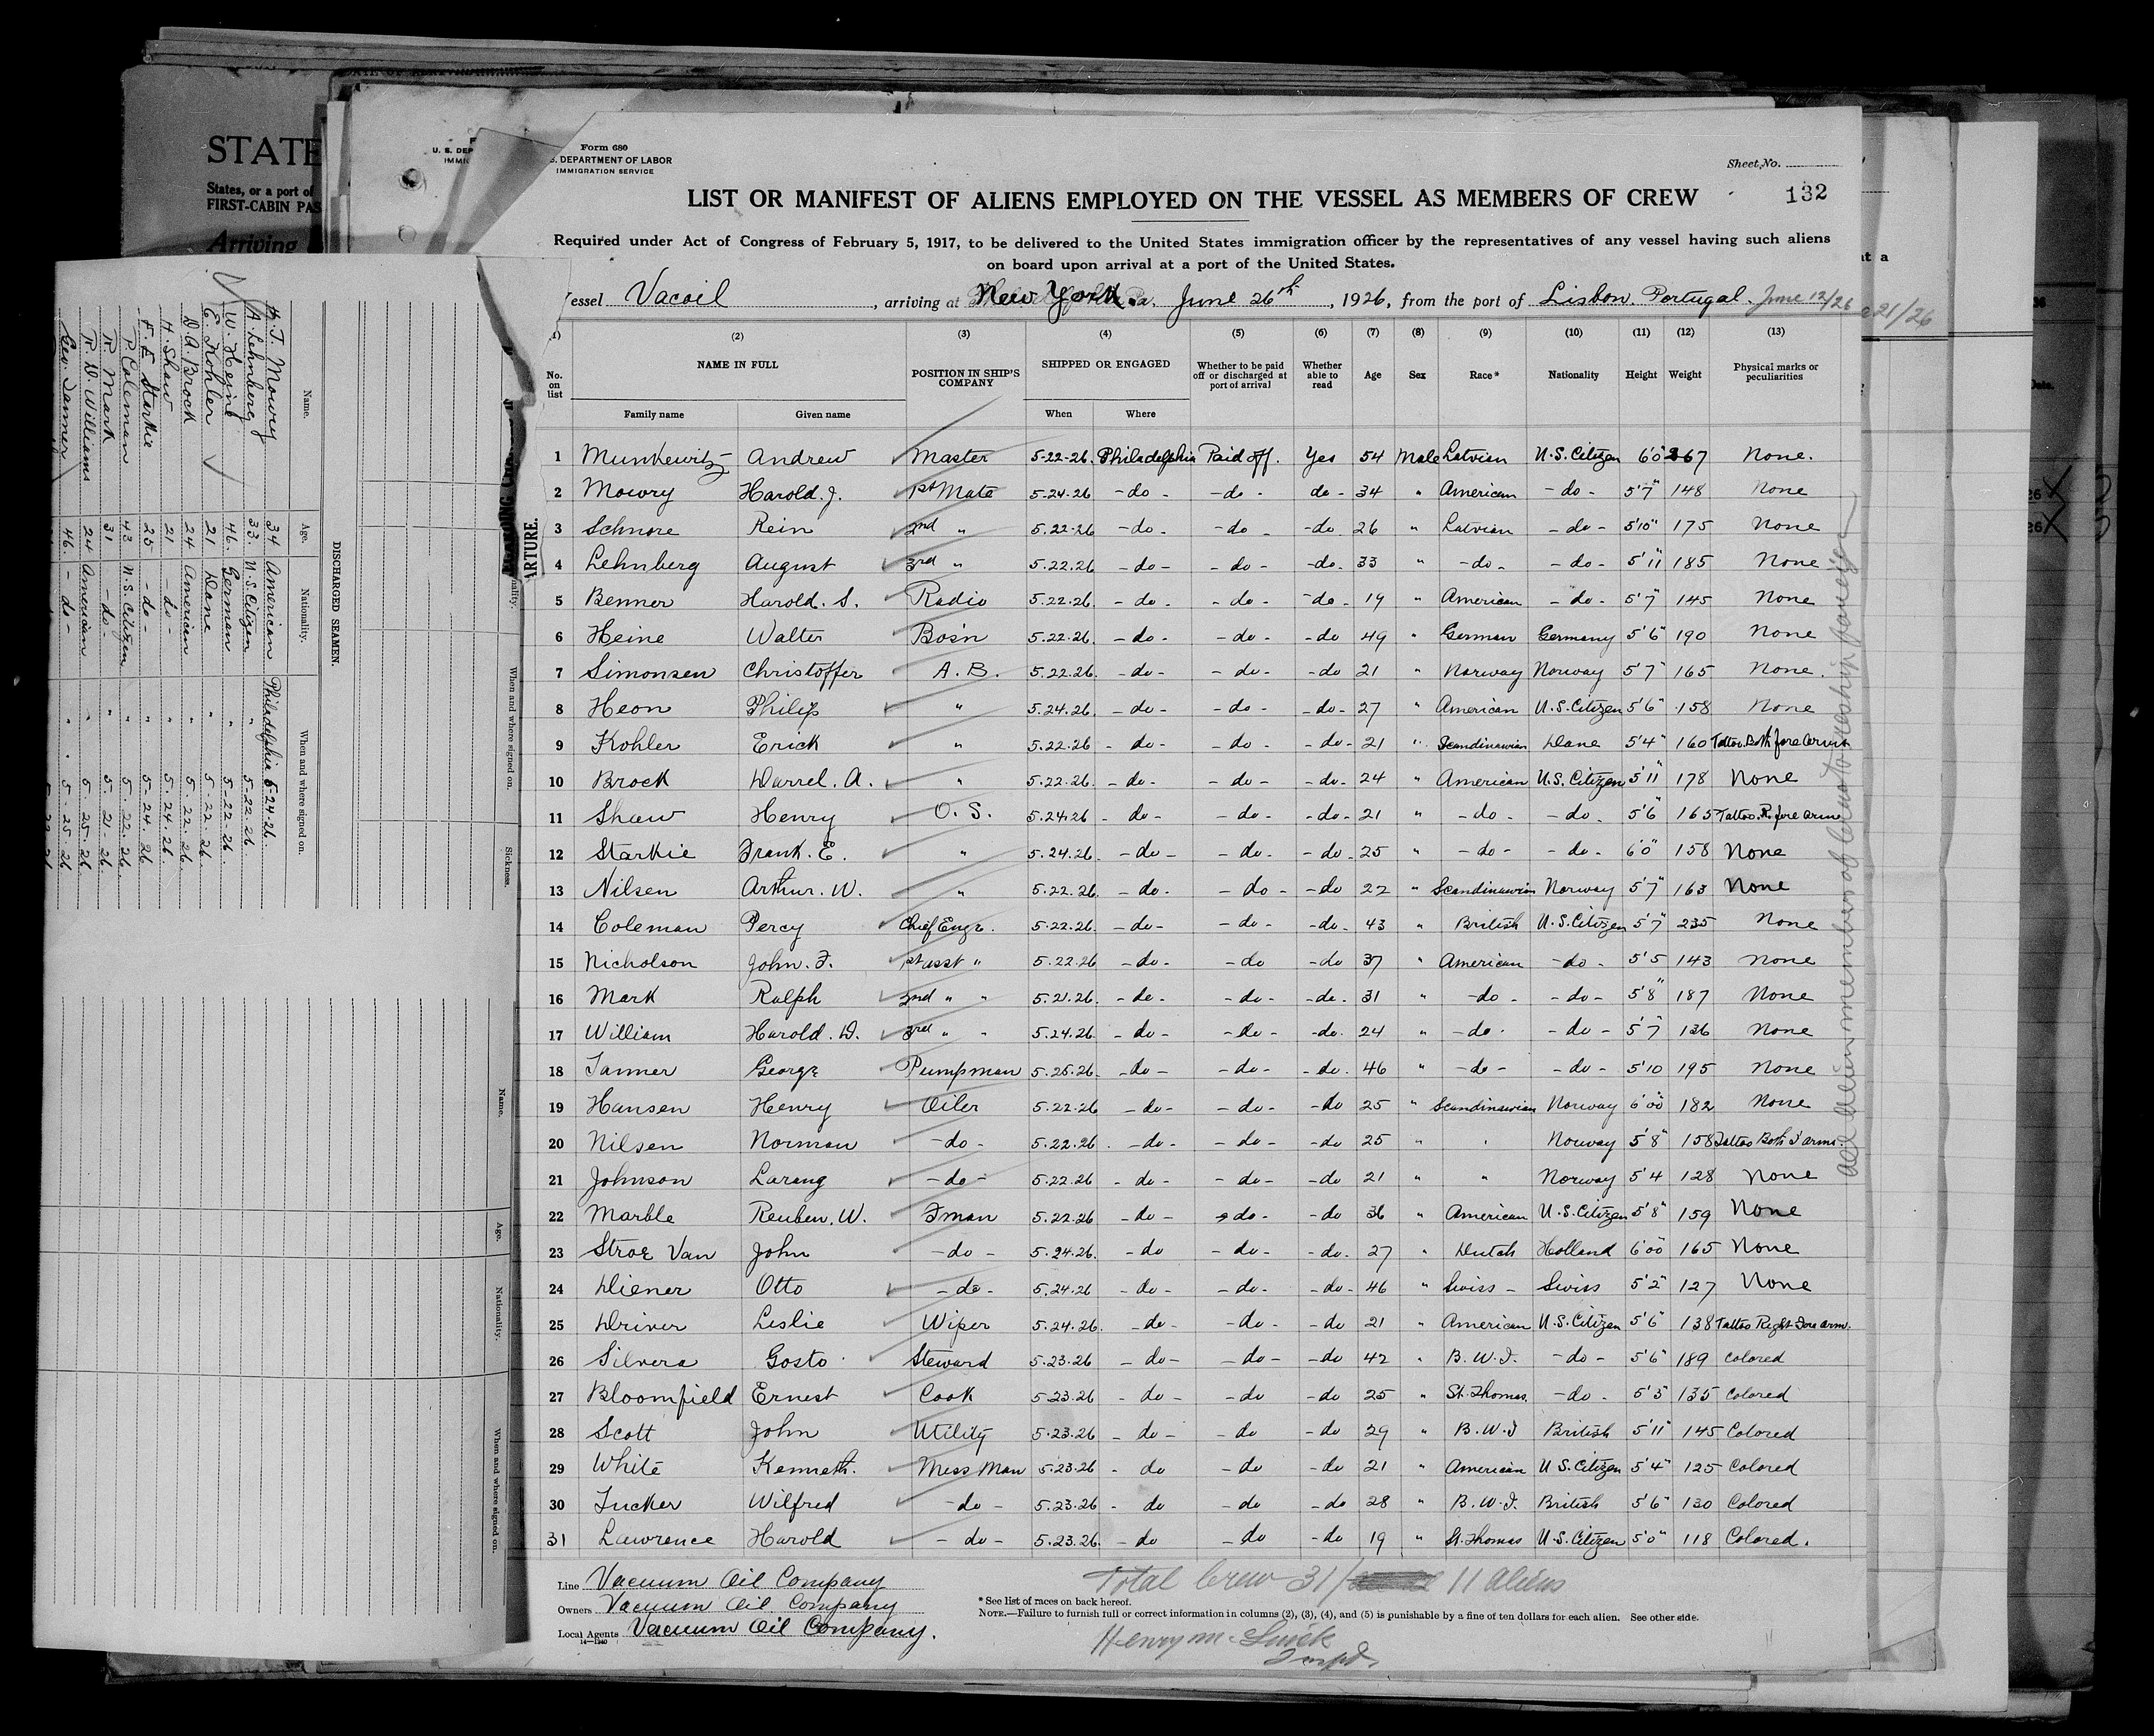 STATE
States, or a port of
FIRST-CABIN PAS
Arriving
Form 680
S. DEPARTMENT OF LABOR
IMMIGRATION SERVICE
Sheet No.
132
LIST OR MANIFEST OF ALIENS EMPLOYED ON THE VESSEL AS MEMBERS OF CREW
Required under Act of Congress of February 5, 1917, to be delivered to the United States immigration officer by the representatives of any vessel having such aliens
on board upon arrival at a port of the United States.
Vessel Vacoil, arriving at New York. June 26th, 1926, from the port of Lisbon. Portugal. June 12/26
21/26
(1) (2) (3) (4) (5) (6) (7) (8) (9) (10) (11) (12) (13)
No. on list NAME IN FULL POSITION IN SHIP'S COMPANY SHIPPED OR ENGAGED Whether to be paid off or discharged at port of arrival Whether able to read Age Sex Race* Nationality Height Weight Physical marks or peculiarities
Family name Given name When Where
1 Munkewitz Andrew Master 5-22-26. Philadelphia Paid off. Yes 54 Male Latvian U.S. Citizen 6'0" 267 None.
2 Mowry Harold. J. 1st Mate 5.24.26 -do- -do- do- 34 " American -do- 5'7" 148 None
3 Schnore Rein 2nd " 5.22.26 -do- -do- -do 26 " Latvian -do- 5'10" 175 None
4 Lehnberg August 3rd " 5.22.26 -do- -do- -do- 33 " -do- -do- 5'11 185 None
5 Benner Harold. S. Radio 5.22.26. -do- -do- -do- 19 " American -do- 5'7" 145 None
6 Heine Walter Bos'n 5.22.26. -do- -do- -do 49 " German Germany 5'6" 190 None
7 Simonsen Christoffer A.B. 5.22.26. -do- -do- -do 21 " Norway Norway 5'7" 165 None.
8 Heon Philip " 5.24.26. -do- -do- -do- 27 " American U.S. Citizen 5'6" 158 None
9 Kohler Erick " 5.22.26 -do- -do- -do- 21 " Scandinavian Dane 5'4" 160 Tattoo. Both fore arms
10 Brock Darrel. A. " 5.22.26. -do- -do- -do- 24 " American U.S. Citizen 5'11" 178 None
11 Shaw Henry O.S. 5.24.26 -do- -do- -do- 21 " -do- -do- 5'6" 165 Tattoo. R. fore arm
12 Starkie Frank. E. " 5.24.26. -do- -do- -do- 25 " -do- -do- 6'0" 158 None
13 Nilsen Arthur. W. " 5.22.26. -do- -do- -do 22 " Scandinavian Norway 5'7" 163 None
14 Coleman Percy Chief Engr. 5.22.26. -do- -do- -do- 43 " British U.S. Citizen 5'7" 235 None
15 Nicholson John. F. 1st asst " 5.22.26 -do- -do -do 37 " American -do- 5'5 143 None
16 Mark Ralph 2nd " " 5.21.26. -do- -do- -do- 31 " -do- -do- 5'8" 187 None
17 William Harold. D. 3rd " " 5.24.26. -do- -do- -do- 24 " -do- -do- 5'7 136 None
18 Tanner George Pumpman 5.25.26. -do- -do- -do- 46 " -do- -do- 5'10 195 None
19 Hansen Henry Oiler 5.22.26 -do- -do- -do 25 " Scandinavian Norway 6'00 182 None
20 Nilsen Norman -do- 5.22.26. -do- -do- -do 25 " " Norway 5'8" 158 Tattoo Both F arms.
21 Johnson Larang -do- 5.22.26 -do- -do- -do 21 " " Norway 5'4 128 None
22 Marble Reuben. W. Fman 5.22.26 -do- -do- -do 36 " American U.S. Citizen 5'8" 159 None
23 Stroe Van John -do- 5.24.26. -do -do- -do- 27 " Dutch Holland 6'00 165 None
24 Diener Otto -do- 5.24.26 -do- -do- -do- 46 " Swiss - Swiss 5'2" 127 None
25 Driver Leslie Wiper 5.24.26. -do- -do- -do 21 " American U.S. Citizen 5'6" 138 Tattoo Right Fore arm.
26 Silvera Gosto Steward 5.23.26 -do- -do- -do 42 " B.W.I. -do- 5'6" 189 Colored
27 Bloomfield Ernest Cook 5.23.26 -do- -do -do 25 " St. Thomas. -do- 5'5" 135 Colored
28 Scott John Utility 5.23.26 -do- -do -do 29 " B.W.I British 5'11" 145 Colored
29 White Kenneth. Mess Man 5.23.26 - do -do -do 21 " American U.S. Citizen 5'4" 125 Colored
30 Tucker Wilfred -do- 5.23.26 - do -do -do 28 " B.W.I. British 5'6" 130 Colored
31 Lawrence Harold -do- 5.23.26. -do -do -do 19 " St. Thomas U.S. Citizen 5'0" 118 Colored.
Line Vacuum Oil Company
Owners Vacuum Oil Company
Local Agents Vacuum Oil Company.
14—1240
Total Crew 31/ 11 aliens
* See list of races on back hereof.
NOTE.—Failure to furnish full or correct information in columns (2), (3), (4), and (5) is punishable by a fine of ten dollars for each alien. See other side.
Henry M.
Insptr.
DISCHARGED SEAMEN.
Name. Age. Nationality. When and where signed on.
H. J. Mowry 34 American Philadelphia 5-24-26.
A. Lehnberg 33. U.S. Citizen " 5-22-26.
W. Heine 46. German " 5-22-26.
E. Kohler 21 Dane " 5.22.26.
D. A. Brock 24 American " 5.22.26.
H. Shaw 21 -do- " 5.24.26.
F. E. Starkie 25 -do- " 5.24.26
P. Coleman 43 U.S. Citizen " 5.22.26.
R. Mark 31 -do- " 5.21.26
R. D. Williams 24 American " 5.25.26.
Geo. Tanner 46. -do- " 5.25.26
Sickness.
When and where signed on.
Name. Age. Nationality. When and where signed on.